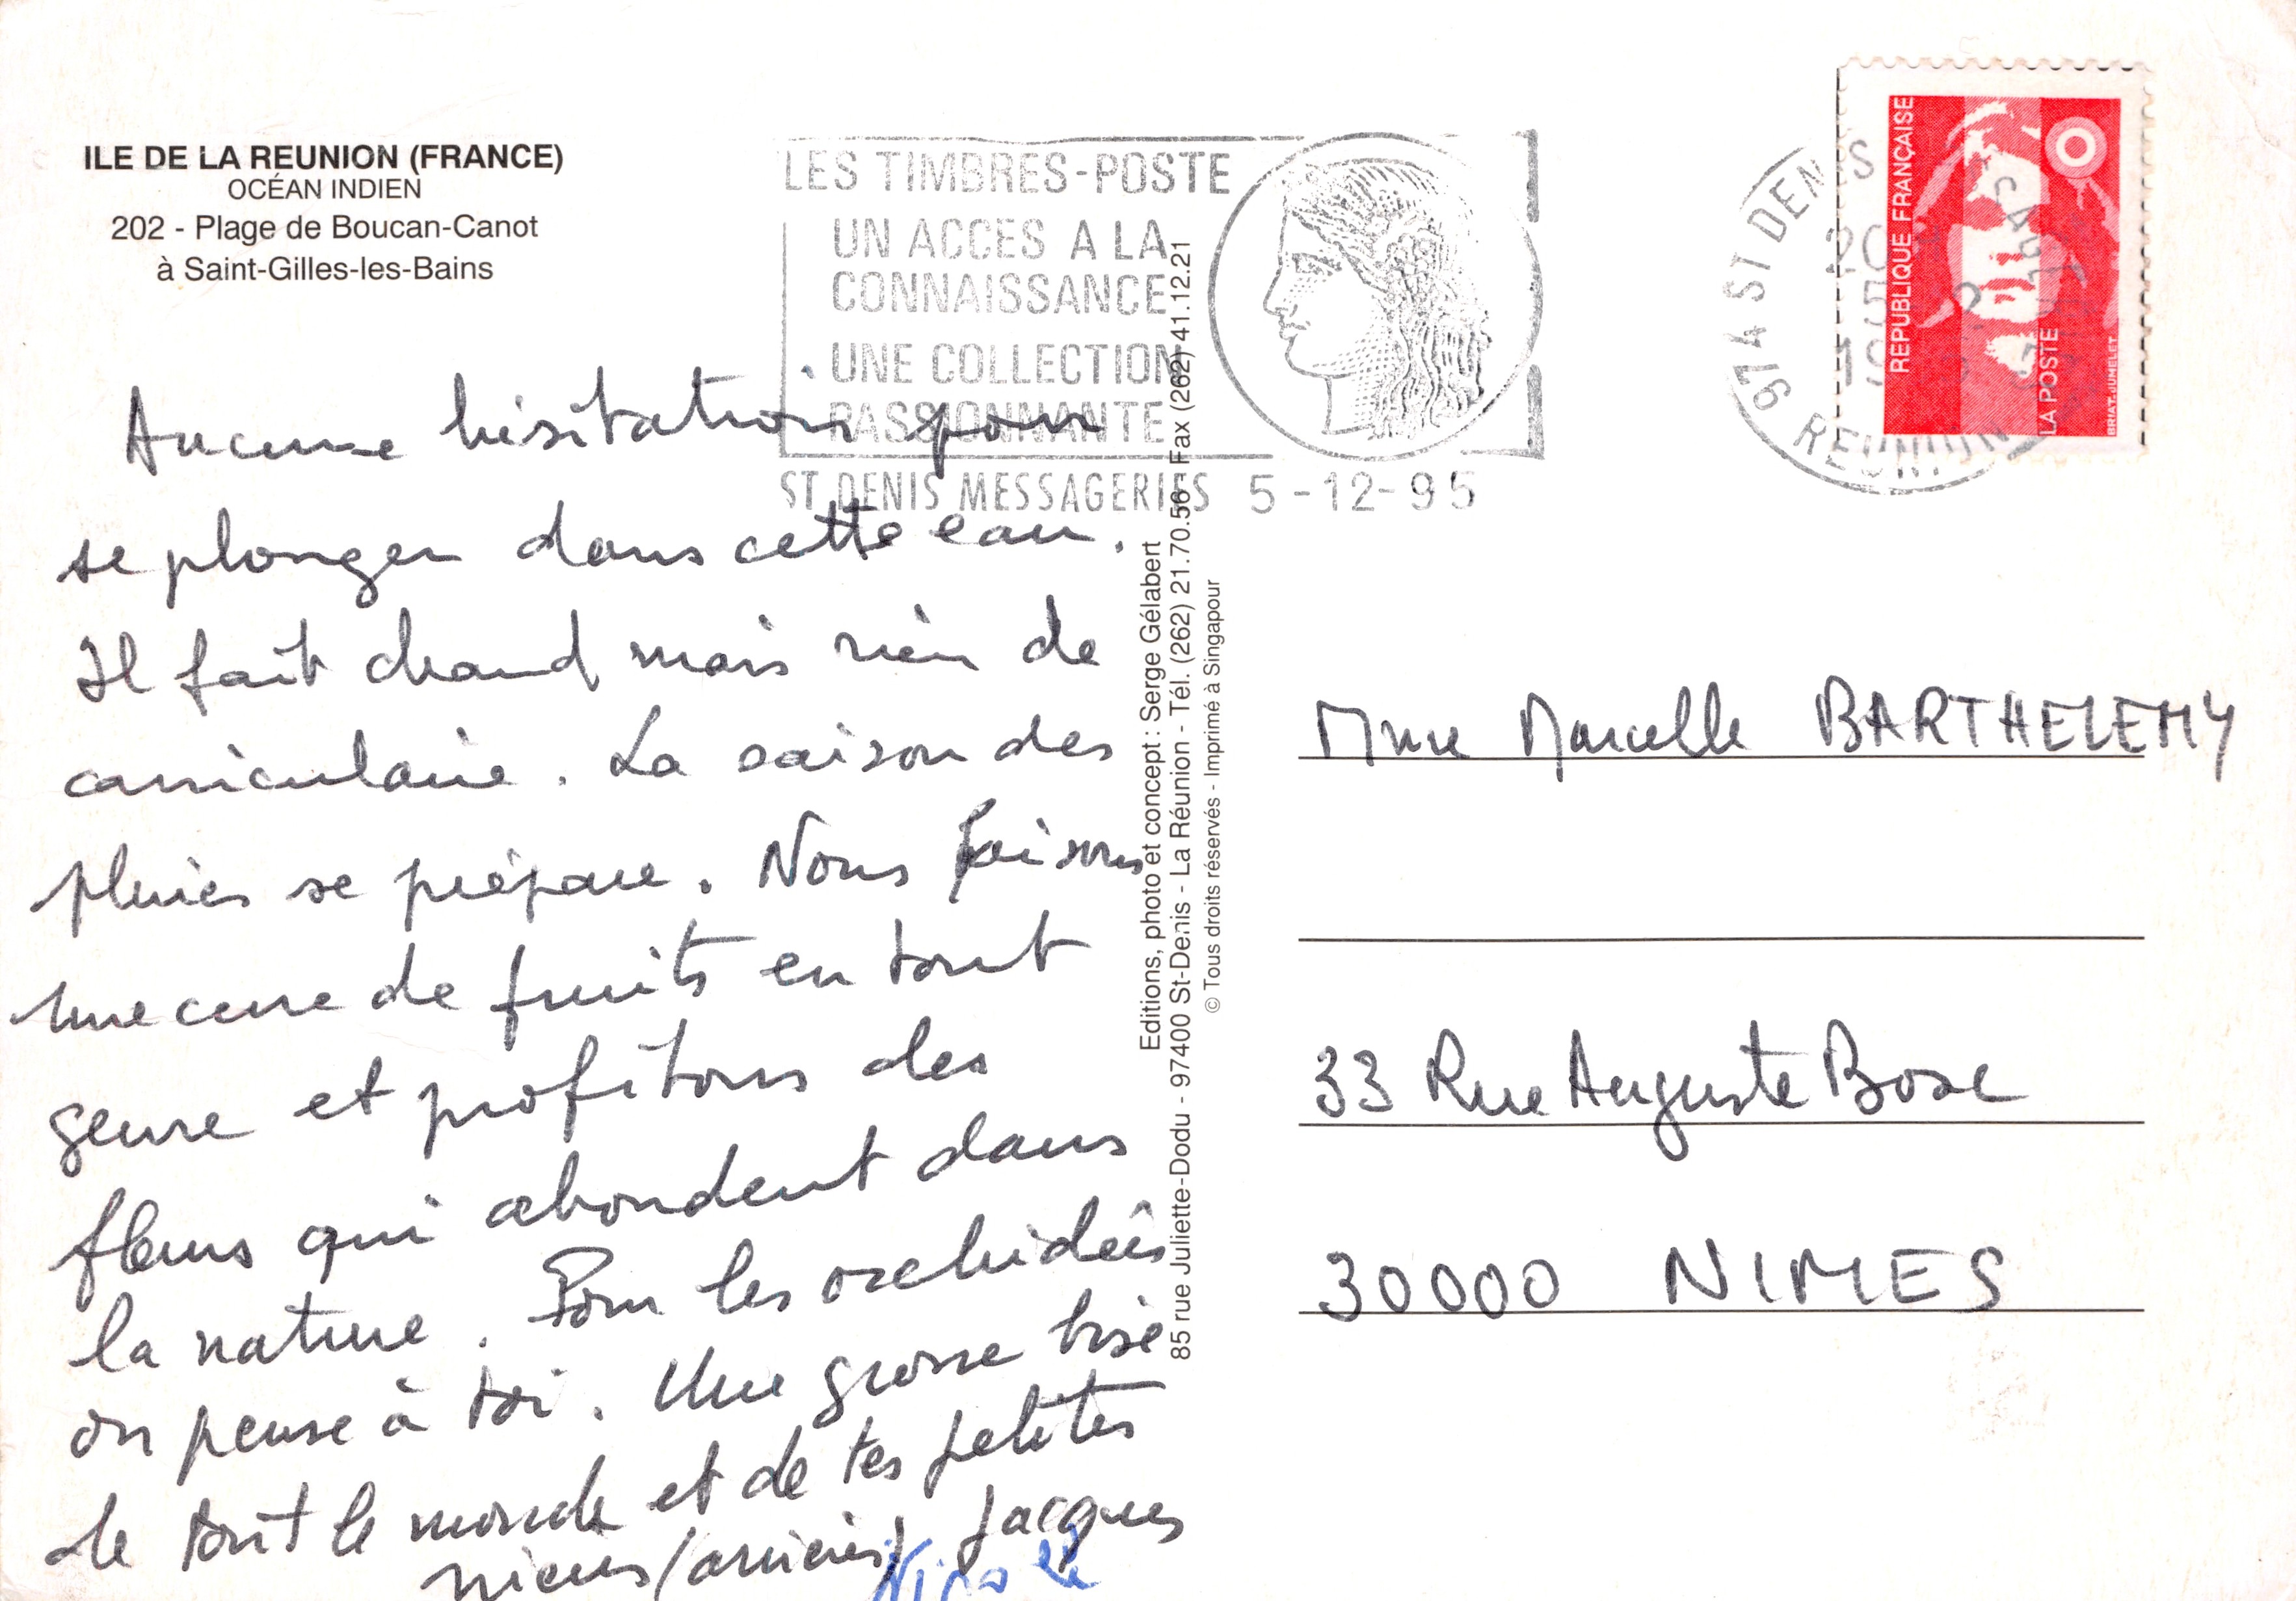 ILE DE LA REUNION (FRANCE)
OCÉAN INDIEN
202 - Plage de Boucan-Canot
à Saint-Gilles-les-Bains
LES TIMBRES-POSTE
UN ACCES A LA
CONNAISSANCE
UNE COLLECTION
PASSIONNANTE
ST DENIS MESSAGERIES 5-12-95
974 ST DENIS
REUNION
REPUBLIQUE FRANÇAISE
LA POSTE
BRIAT. JUMELET
Aucune hésitation pour
se plonger dans cette eau.
Il fait chaud mais rien de
caniculaire. La saison des
pluies se prépare. Nous faisons
une cure de fruits en tout
genre et profitons des
fleurs qui abondent dans
la nature. Pour les orchidées
on pense à toi. Une grosse bise
de tout le monde et de tes petites
nièces (arrières) Jacques
Nicole
Editions, photo et concept : Serge Gélabert
85 rue Juliette-Dodu - 97400 St-Denis - La Réunion - Tél. (262) 21.70.56 - Fax (262) 41.12.21
© Tous droits réservés - Imprimé à Singapour
Mme Marcelle BARTHELEMY
33 Rue Auguste Bosc
30000 NIMES